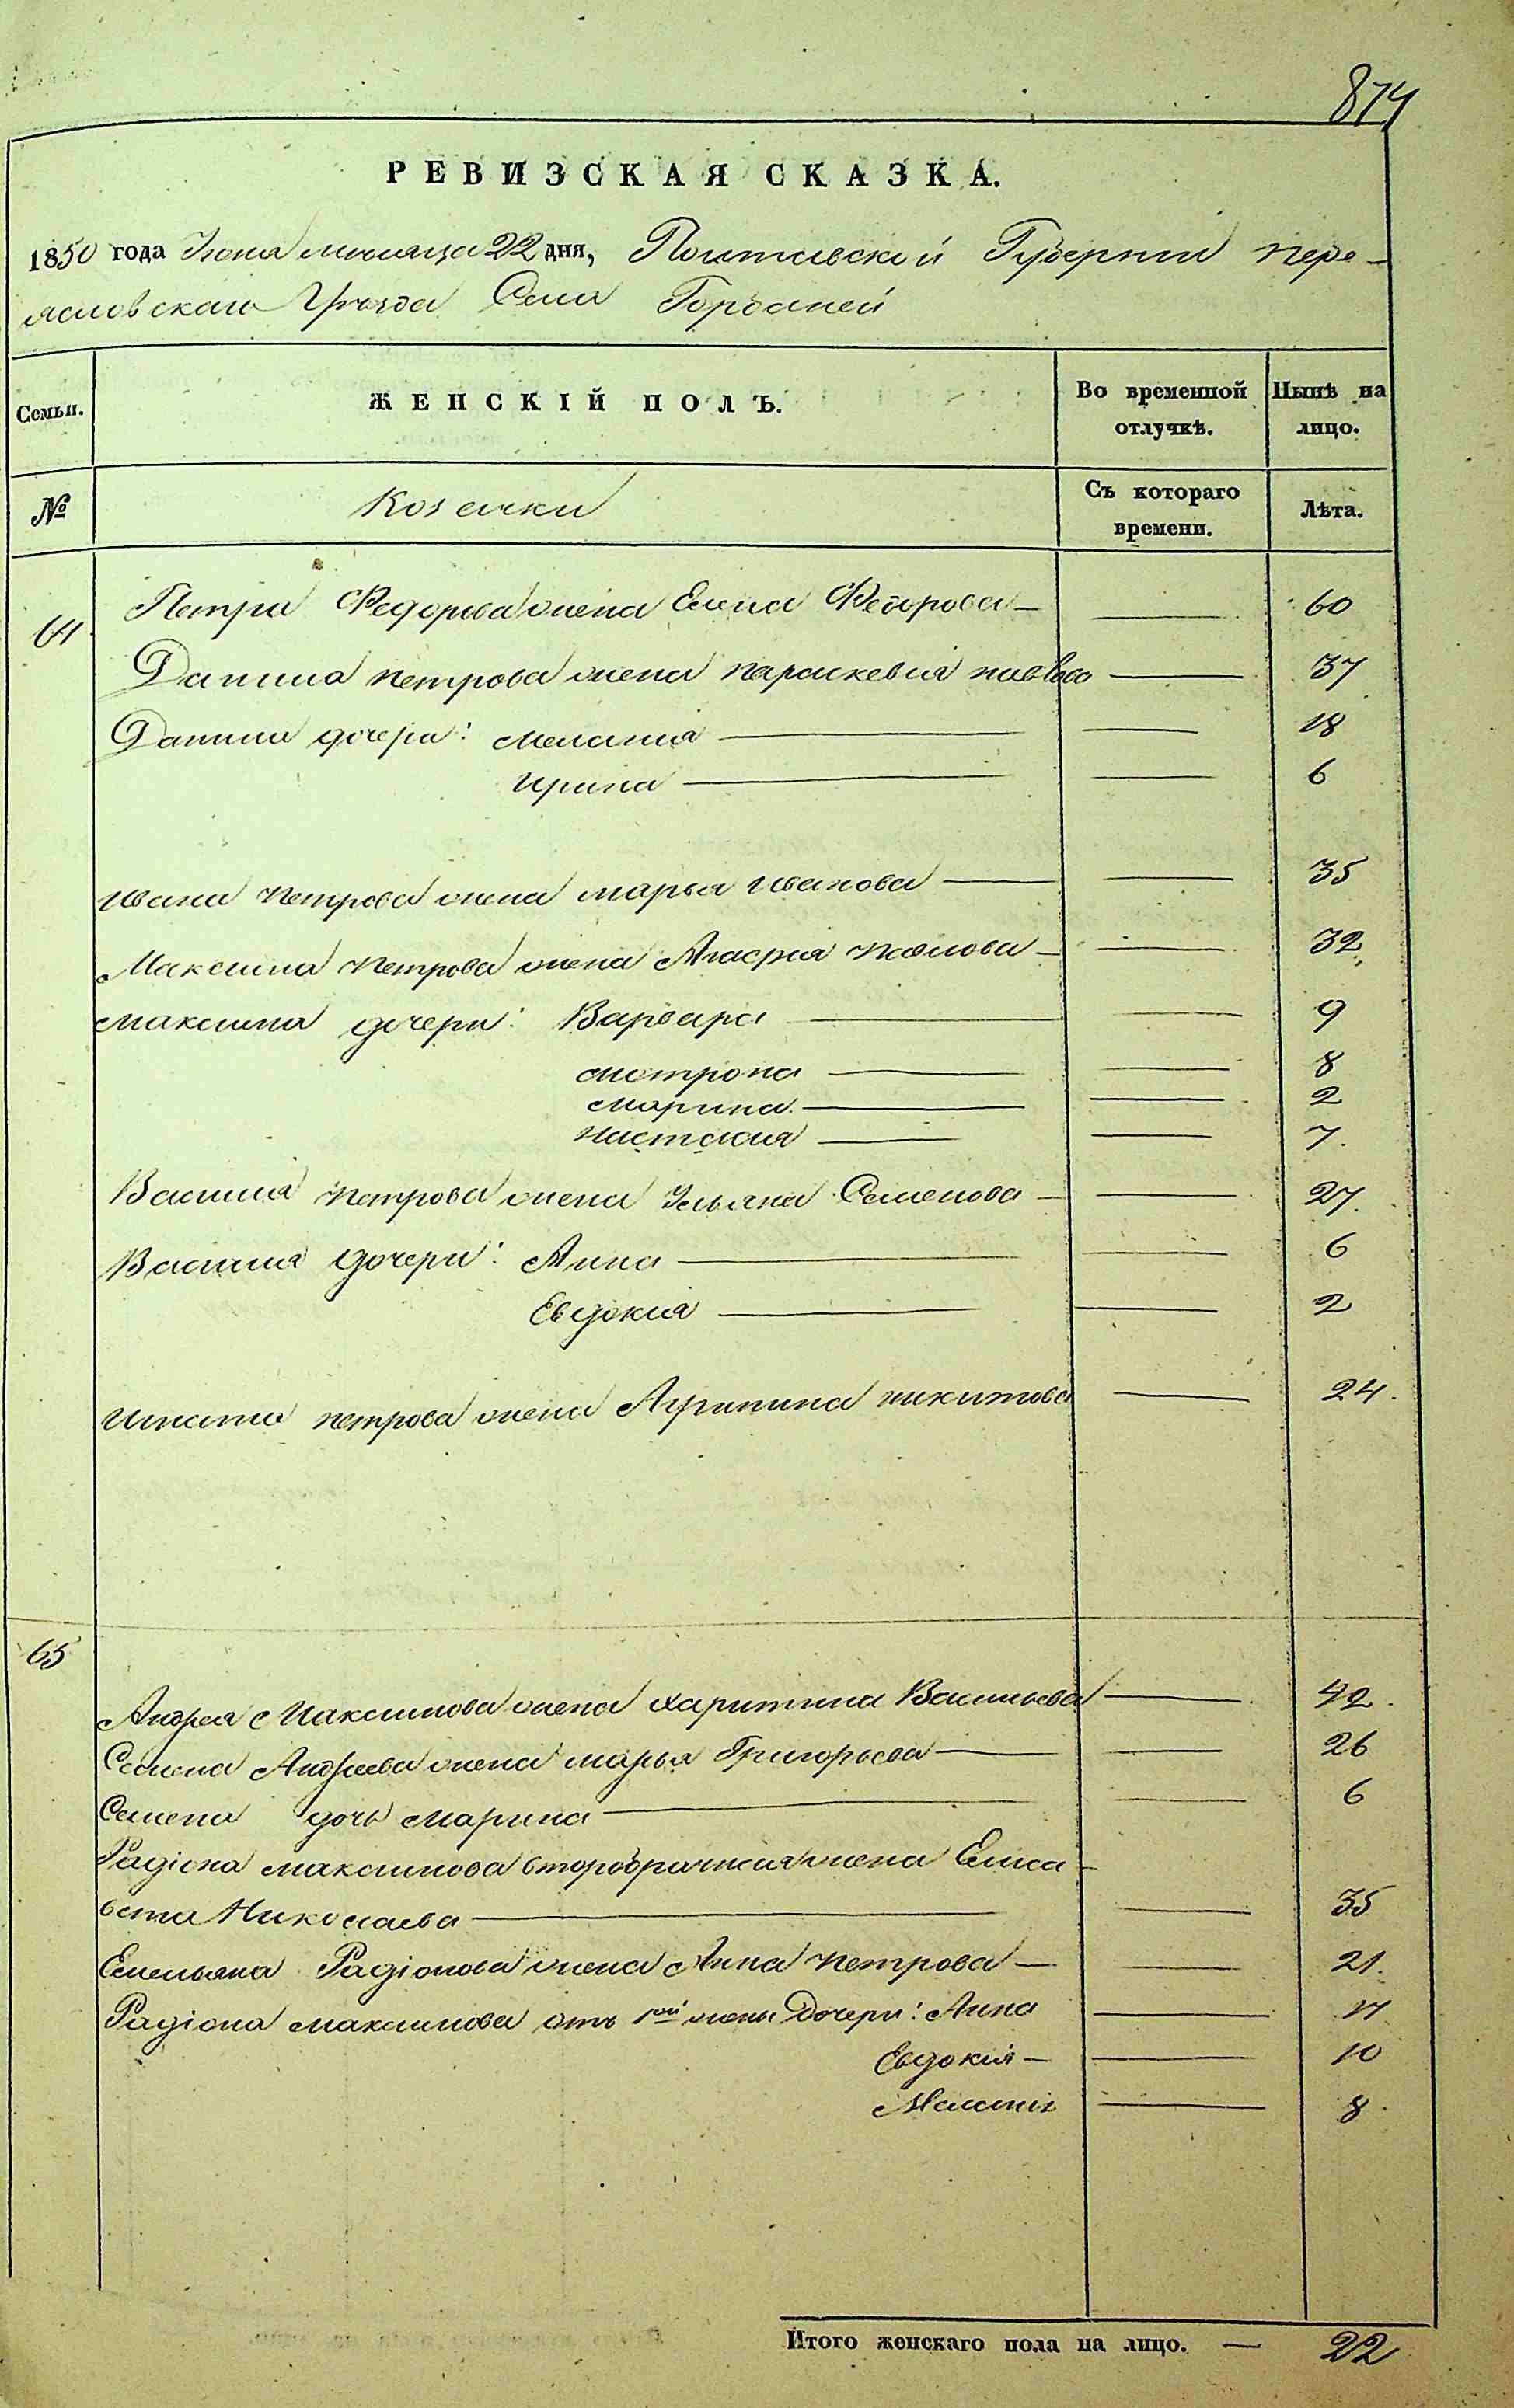 874
РЕВИЗСКАЯ СКАЗКА.
1850 года Іюня месяца 22 дня, Полтавской Губерніи пере-
яславскаго Уѣзда Села Горбаней
Семьи. ЖЕНСКІЙ ПОЛЪ. Во временной отлучкѣ. Нынѣ на лицо.
№ Козачки Съ котораго времени. Лѣта.
64 Петра Федорова жена Елена Федорова — 60
Данила петрова жена параскевія павлова — 37
Данила дочери: Меланія — 18
Ирина — 6
Ивана Петрова жена марья Иванова — 35
Максима Петрова жена Агафія Павлова — 32
Максима дочери: Варвара — 9
мотрона — 8
Марина — 2
Настасия — 7.
Василия Петрова жена Ульяна Семенова — 27.
Василия дочери: Анна — 6
Евдокия — 2
Игната петрова жена Агрипина никитова — 24.
65
Андрея Максимова жена харитина Васильева — 42.
Семена Андреева жена марья Григорьева — 26
Семена дочь Марина — 6
Радіона максимова второбрачная жена Елиса-
вета Николаева — 35
Емельяна Радіонова жена Анна Петрова — 21.
Радіона максимова отъ 1ой жены Дочери: Анна — 11
Евдокія — 10
Меланія — 8
Итого женскаго пола на лицо. — 22